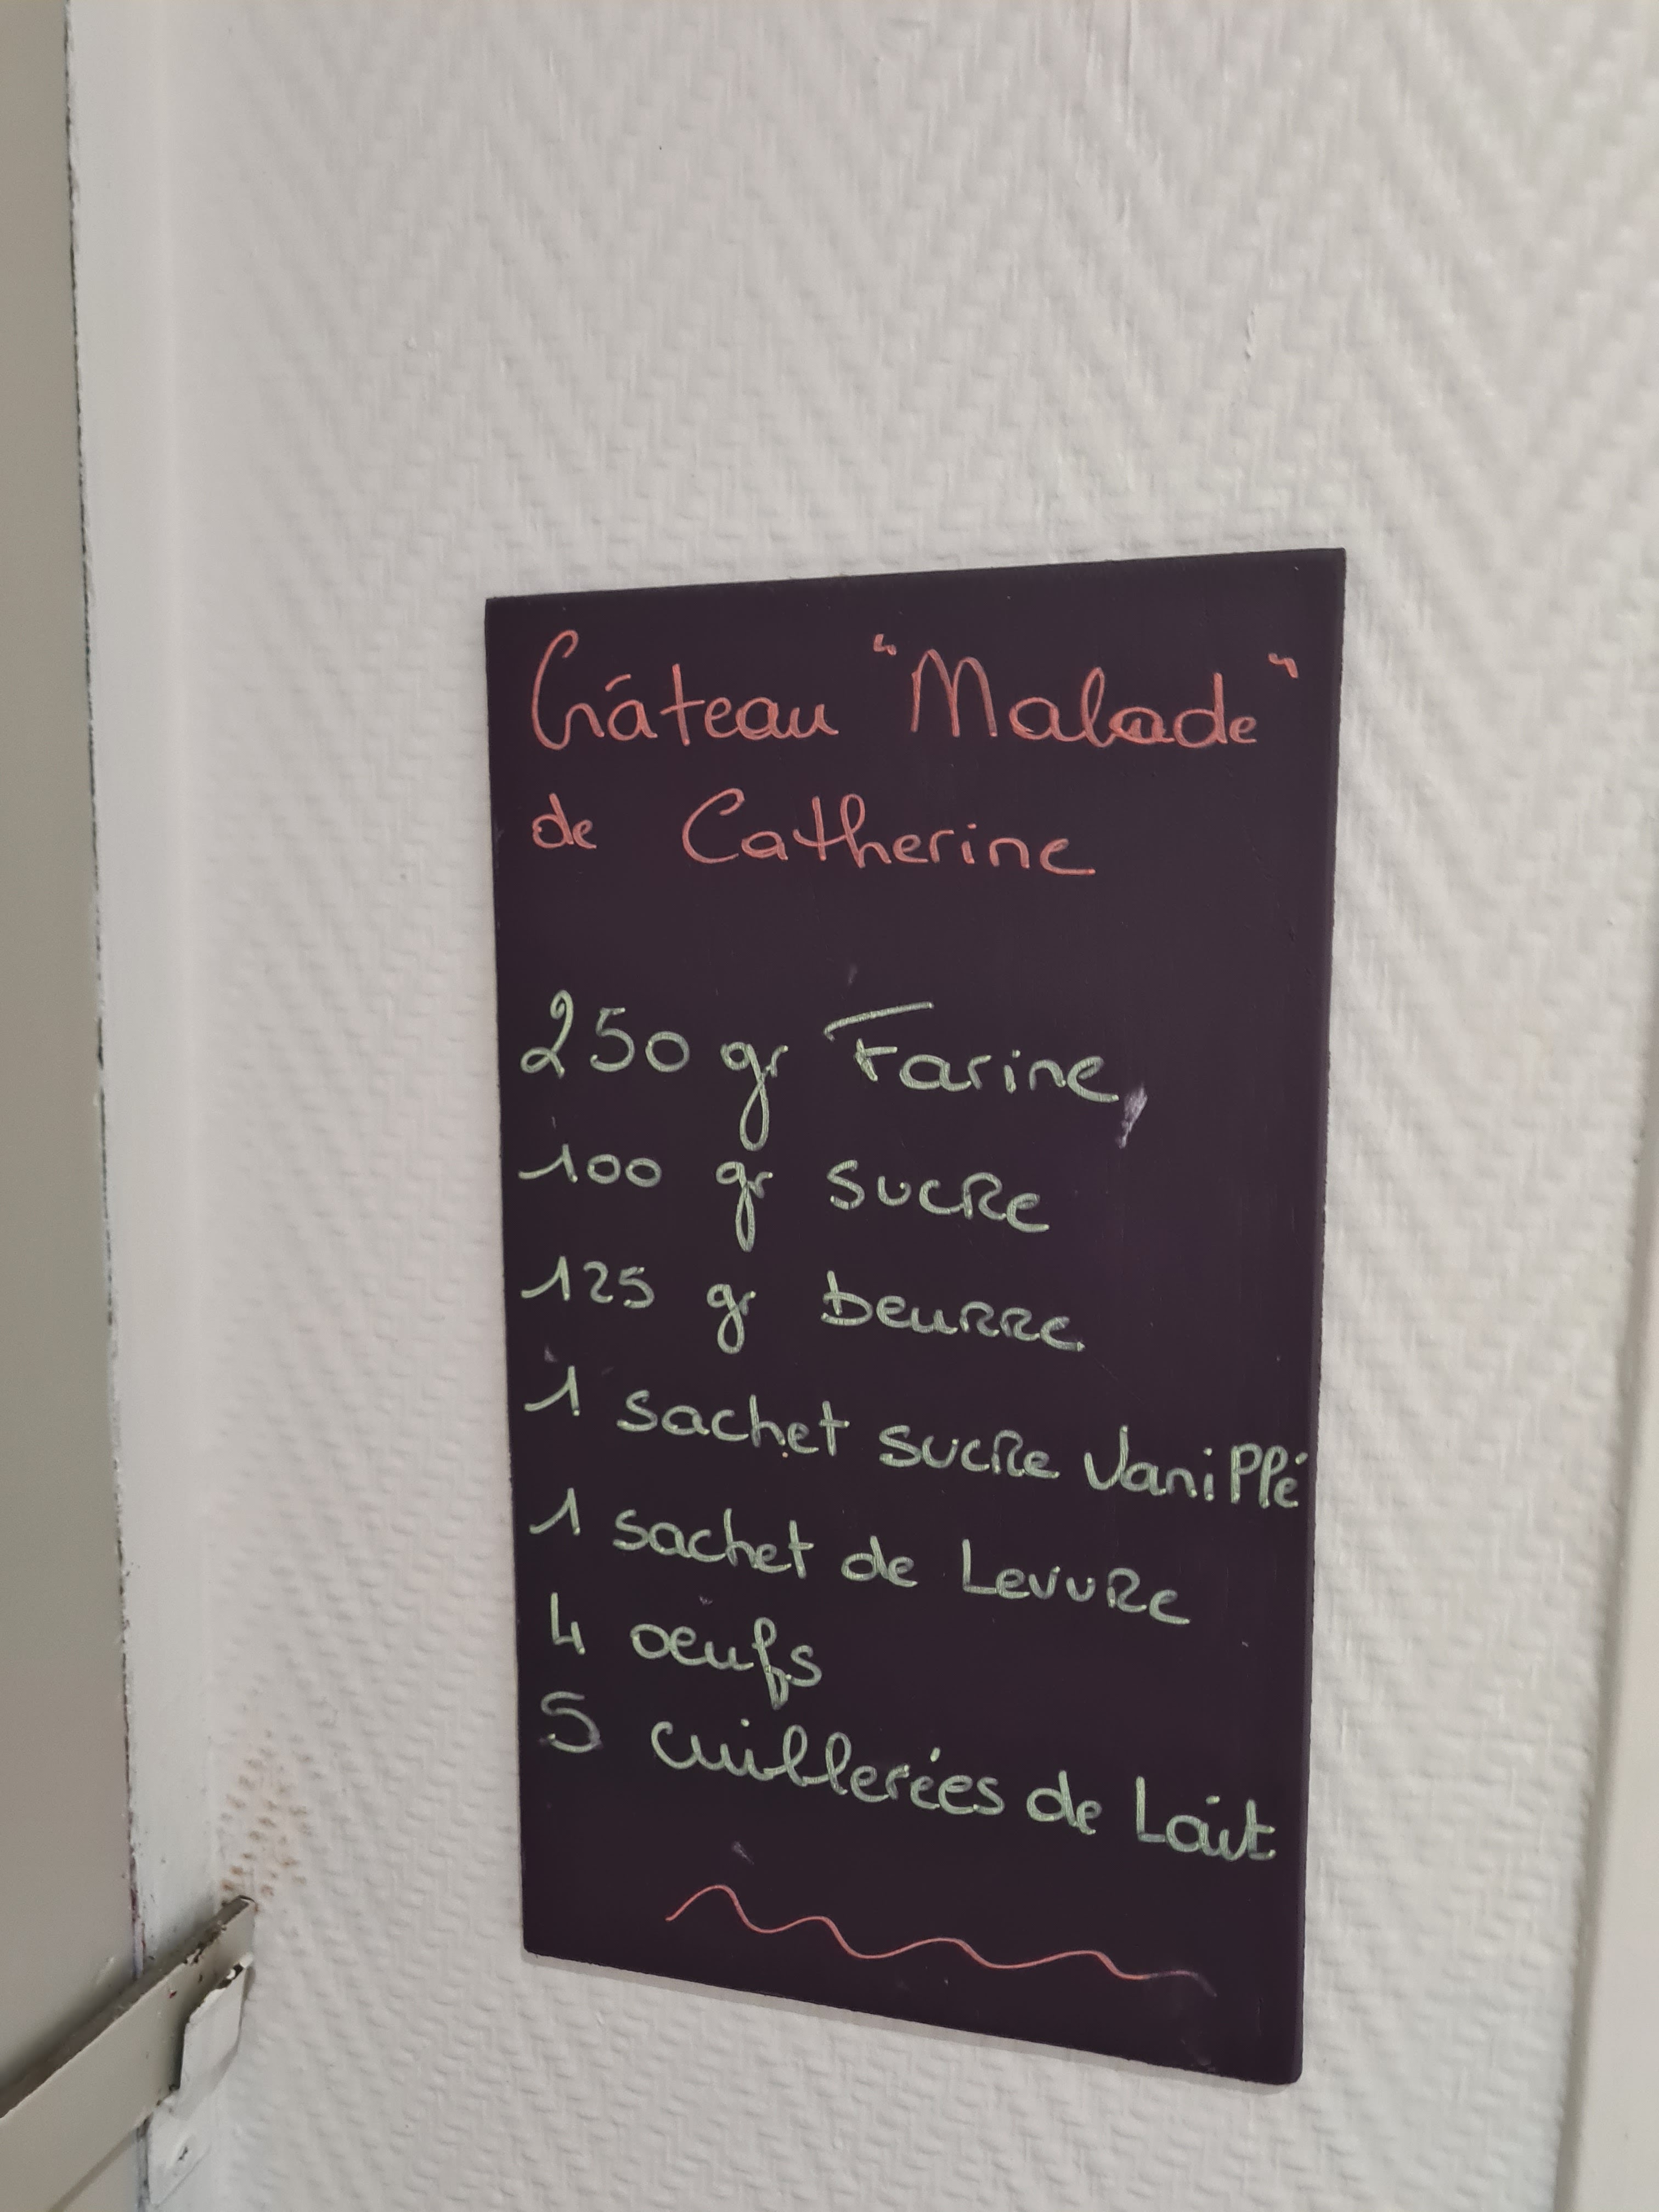 Gâteau "Malade"
de Catherine
250 gr Farine
100 gr sucre
125 gr beurre
1 sachet sucre Vanillé
1 sachet de Levure
4 oeufs
5 cuillerées de Lait